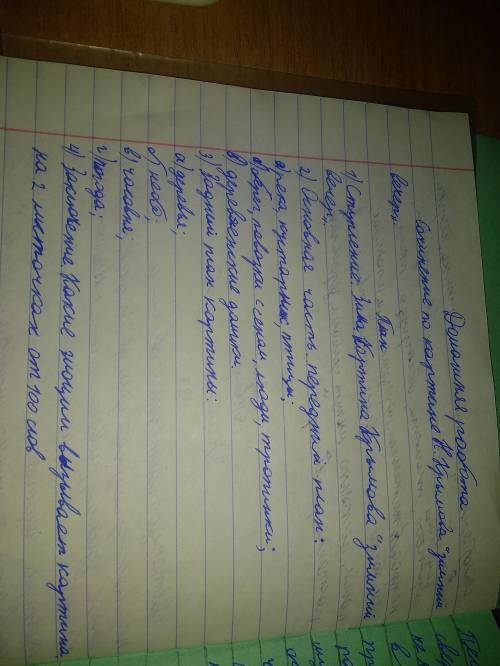 Домашняя работа
Сочинение по картине Н. Крымова "Зимний
вечер"
План
1) Вступление. Зима. Картина Крымова "Зимний
вечер".
2) Основная часть. передний план:
а) река, кустарник, птицы;
б) берег, повозки с сеном, люди, тропинки;
в) деревенские домики.
3) Задний план картины:
а) деревья;
б) небо;
в) часовня;
г) погода;
4) Заключение. Какие эмоции вызывает картина.
на 2 листочках от 100 слов